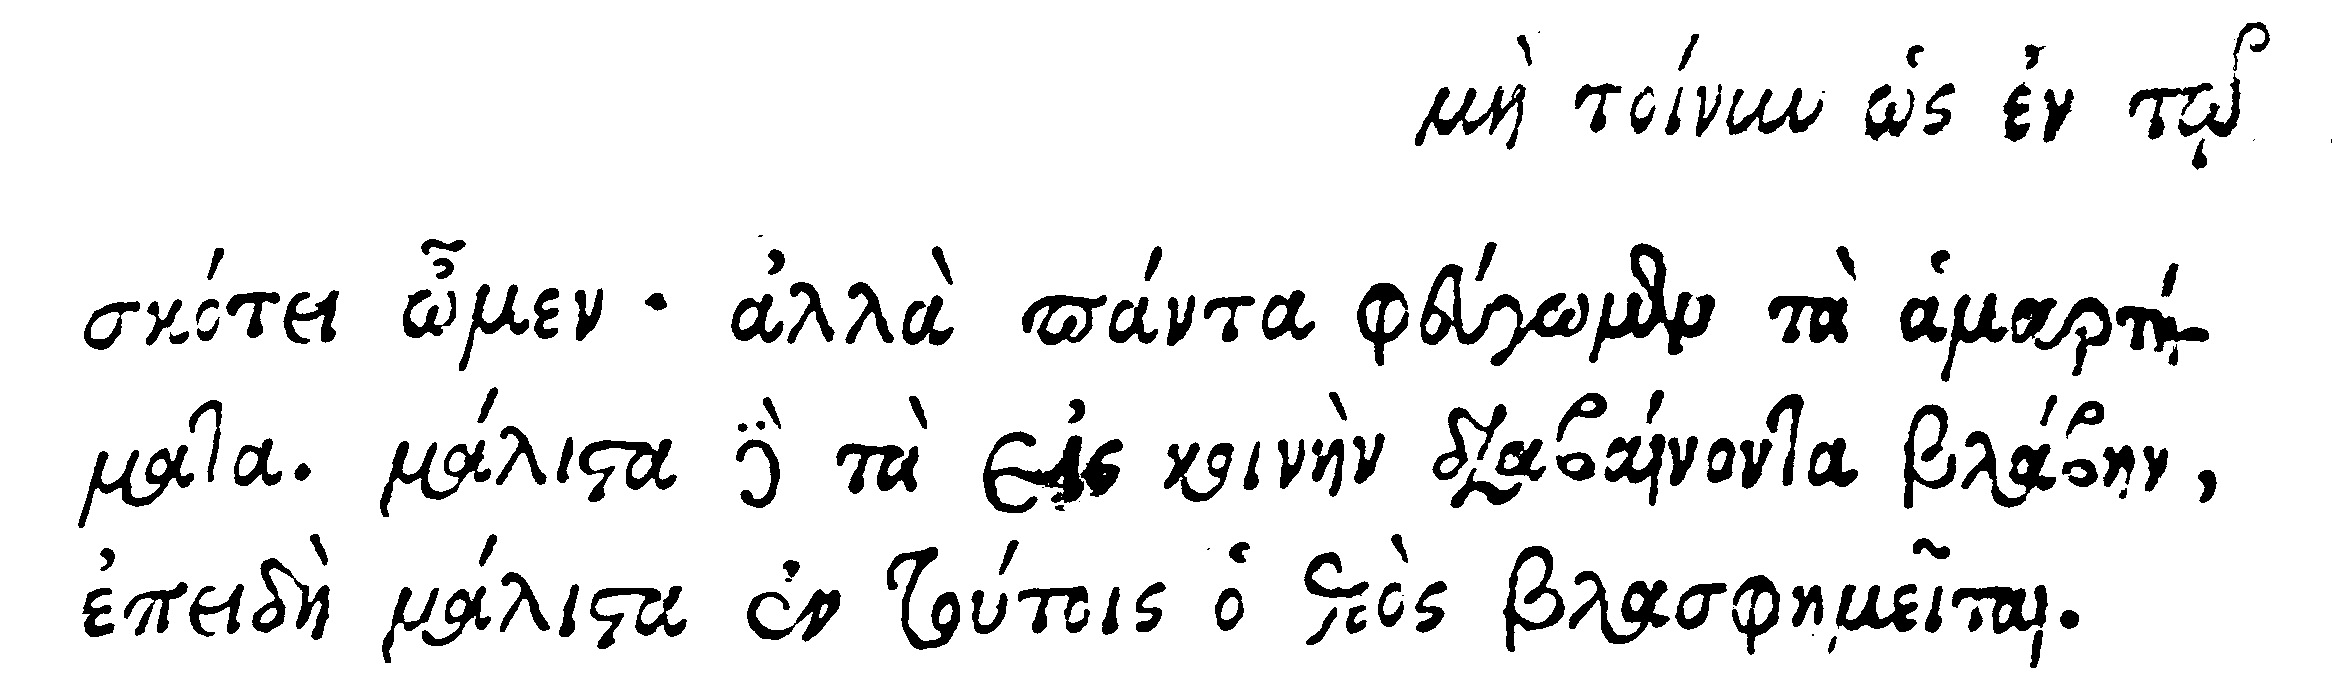 μὴ τοίνυν ὡς ἐν τῷ
σκότει ὦμεν· ἀλλὰ πάντα φεύγωμεν τὰ ἁμαρτή-
ματα. μάλιστα δὲ τὰ εἰς κοινὴν διαβαίνοντα βλάβην,
ἐπειδὴ μάλιστα ἐν τούτοις ὁ θεὸς βλασφημεῖται.